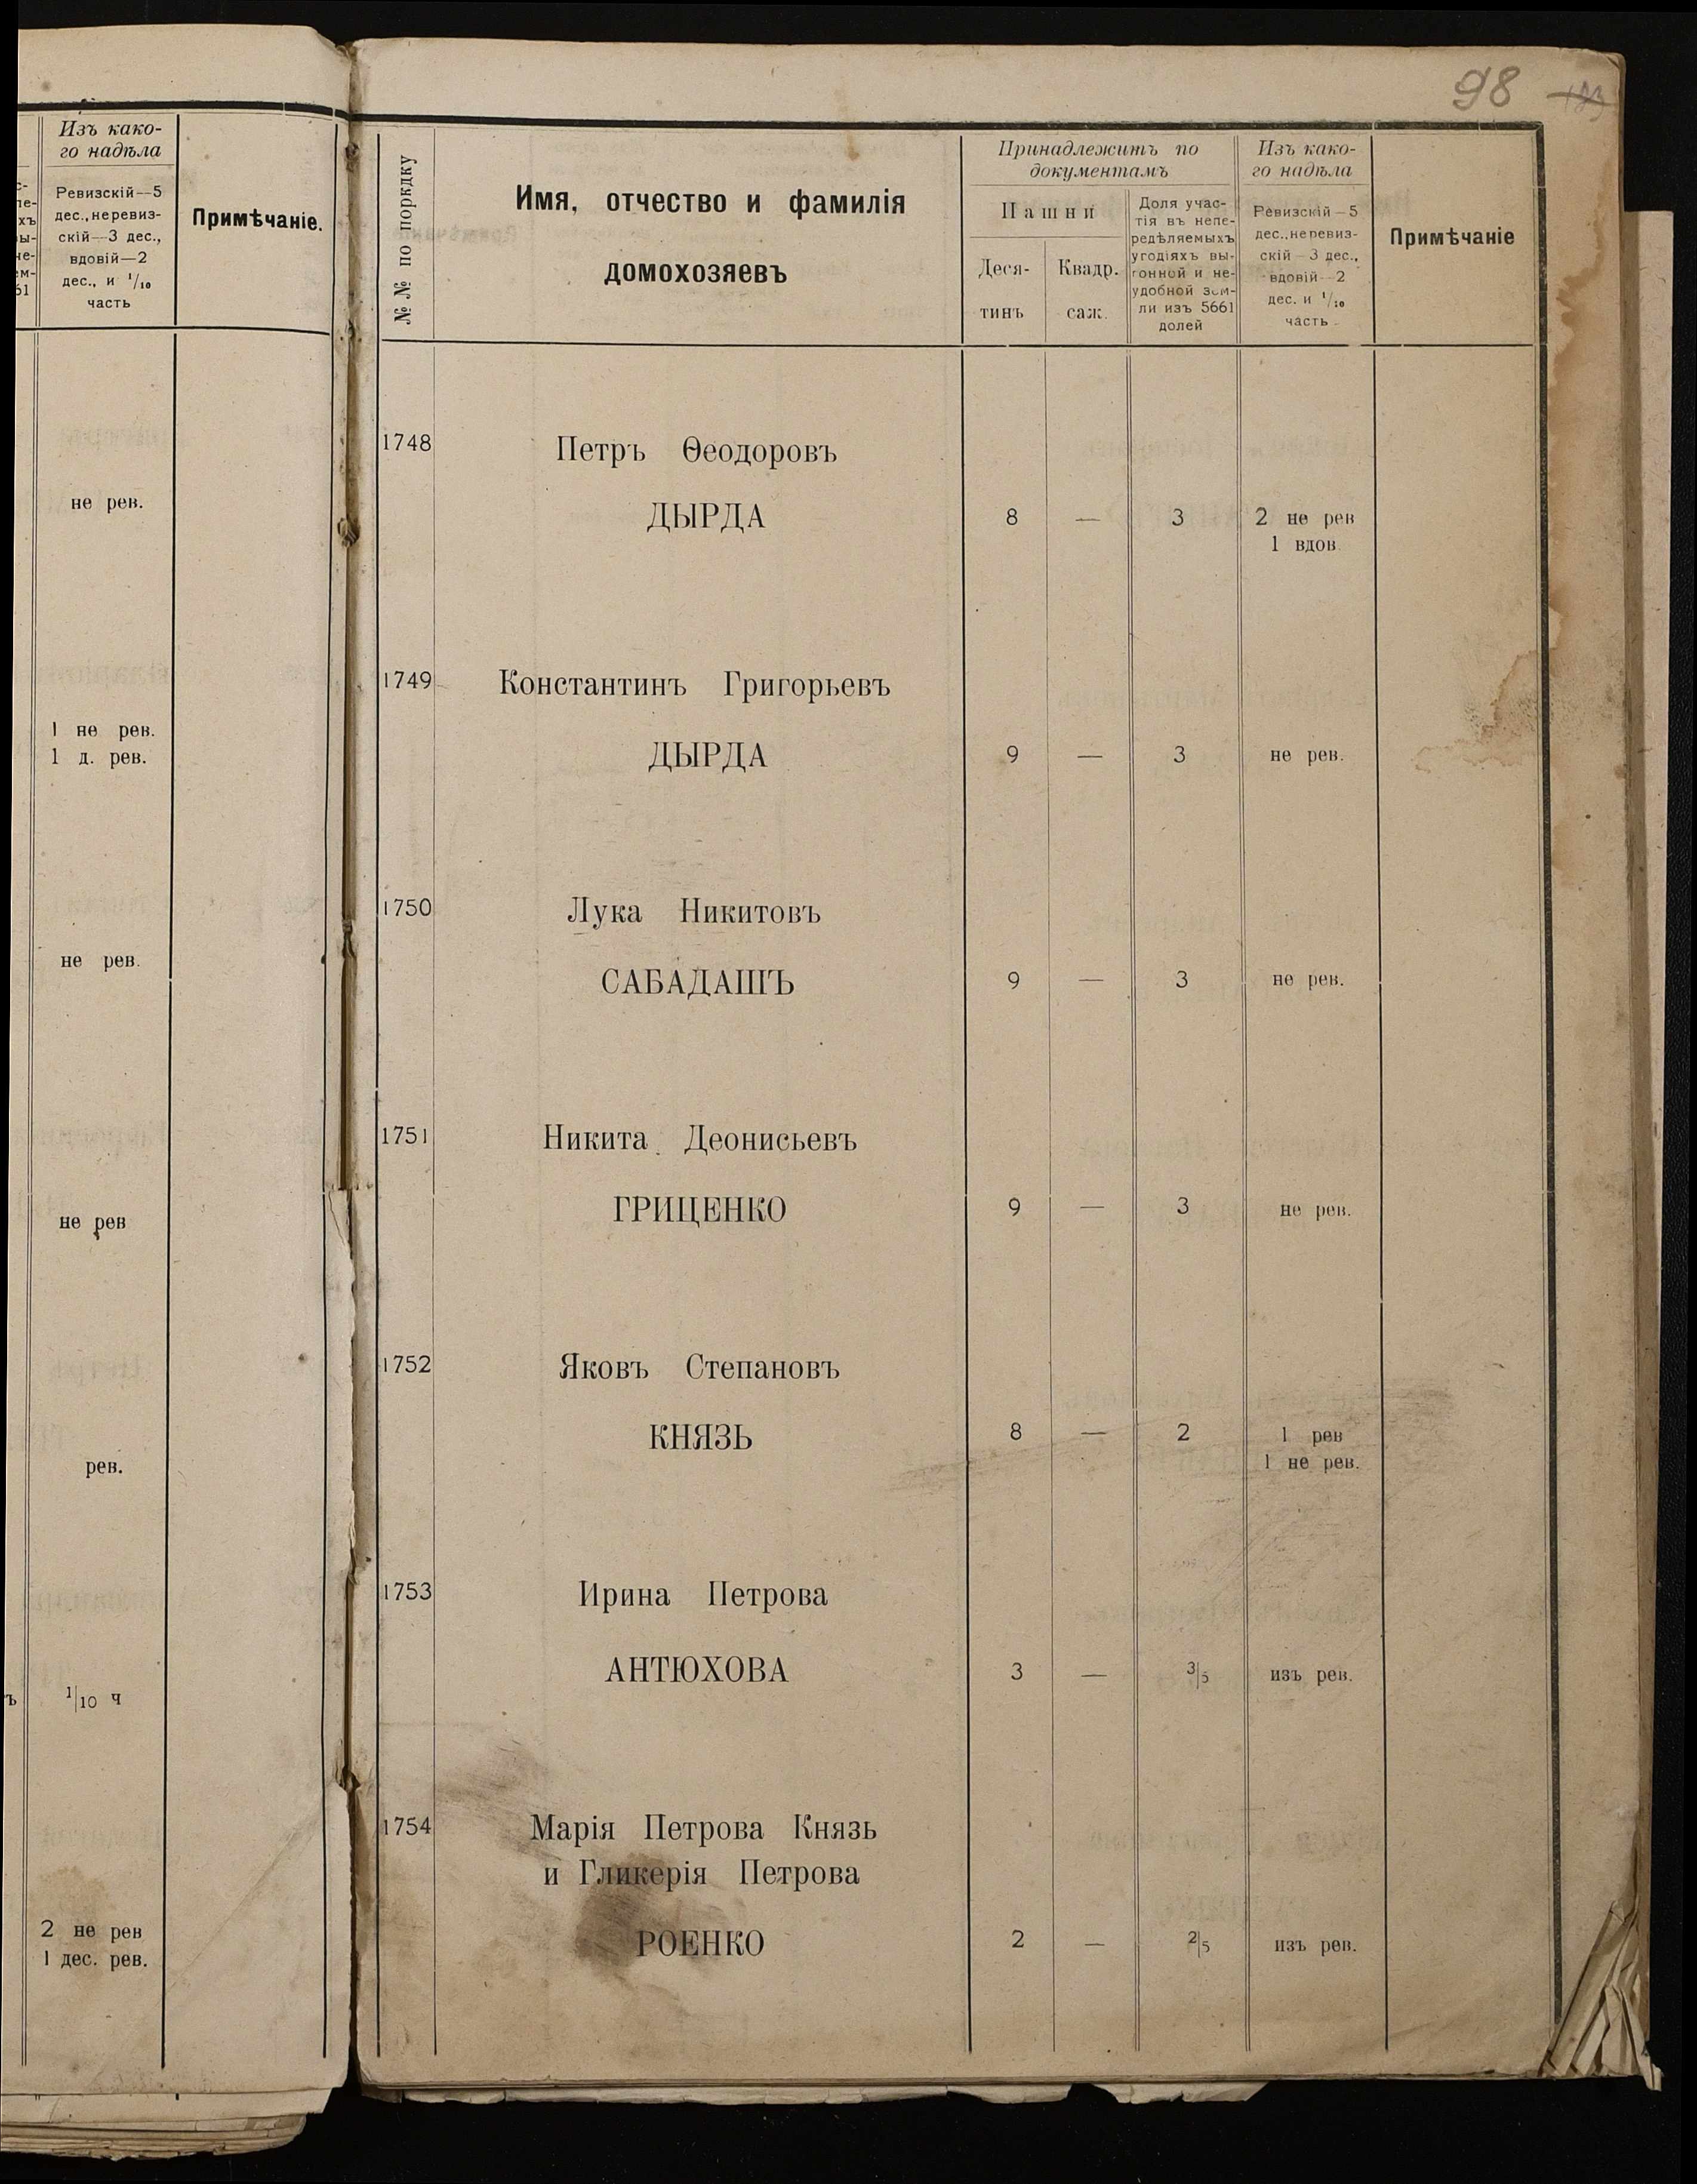 98
Изъ како-
го надѣла
Ревизскій—5
дес., неревиз-
скій—3 дес.,
вдовій—2
дес., и 1/10
часть
Примѣчаніе.
не рев.
1 не рев.
1 д. рев.
не рев.
не рев
рев.
1/10 ч
2 не рев
1 дес. рев.
№№ по порядку
Имя, отчество и фамилія
домохозяевъ
Принадлежитъ по
документамъ
Пашни
Деся-
тинъ
Квадр.
саж.
Доля учас-
тія въ непе-
редѣляемыхъ
угодіяхъ вы-
гонной и не-
удобной зем-
ли изъ 5661
долей
Изъ како-
го надѣла
Ревизскій—5
дес., неревиз-
скій—3 дес.,
вдовій—2
дес. и 1/10
часть
Примѣчаніе
1748 Петръ Ѳеодоровъ
ДЫРДА 8 — 3 2 не рев
1 вдов.
1749 Константинъ Григорьевъ
ДЫРДА 9 — 3 не рев.
1750 Лука Никитовъ
САБАДАШЪ 9 — 3 не рев.
1751 Никита Деонисьевъ
ГРИЦЕНКО 9 — 3 не рев.
1752 Яковъ Степановъ
КНЯЗЬ 8 — 2 1 рев
1 не рев.
1753 Ирина Петрова
АНТЮХОВА 3 — 3/5 изъ рев.
1754 Марія Петрова Князь
и Гликерія Петрова
РОЕНКО 2 — 2/5 изъ рев.